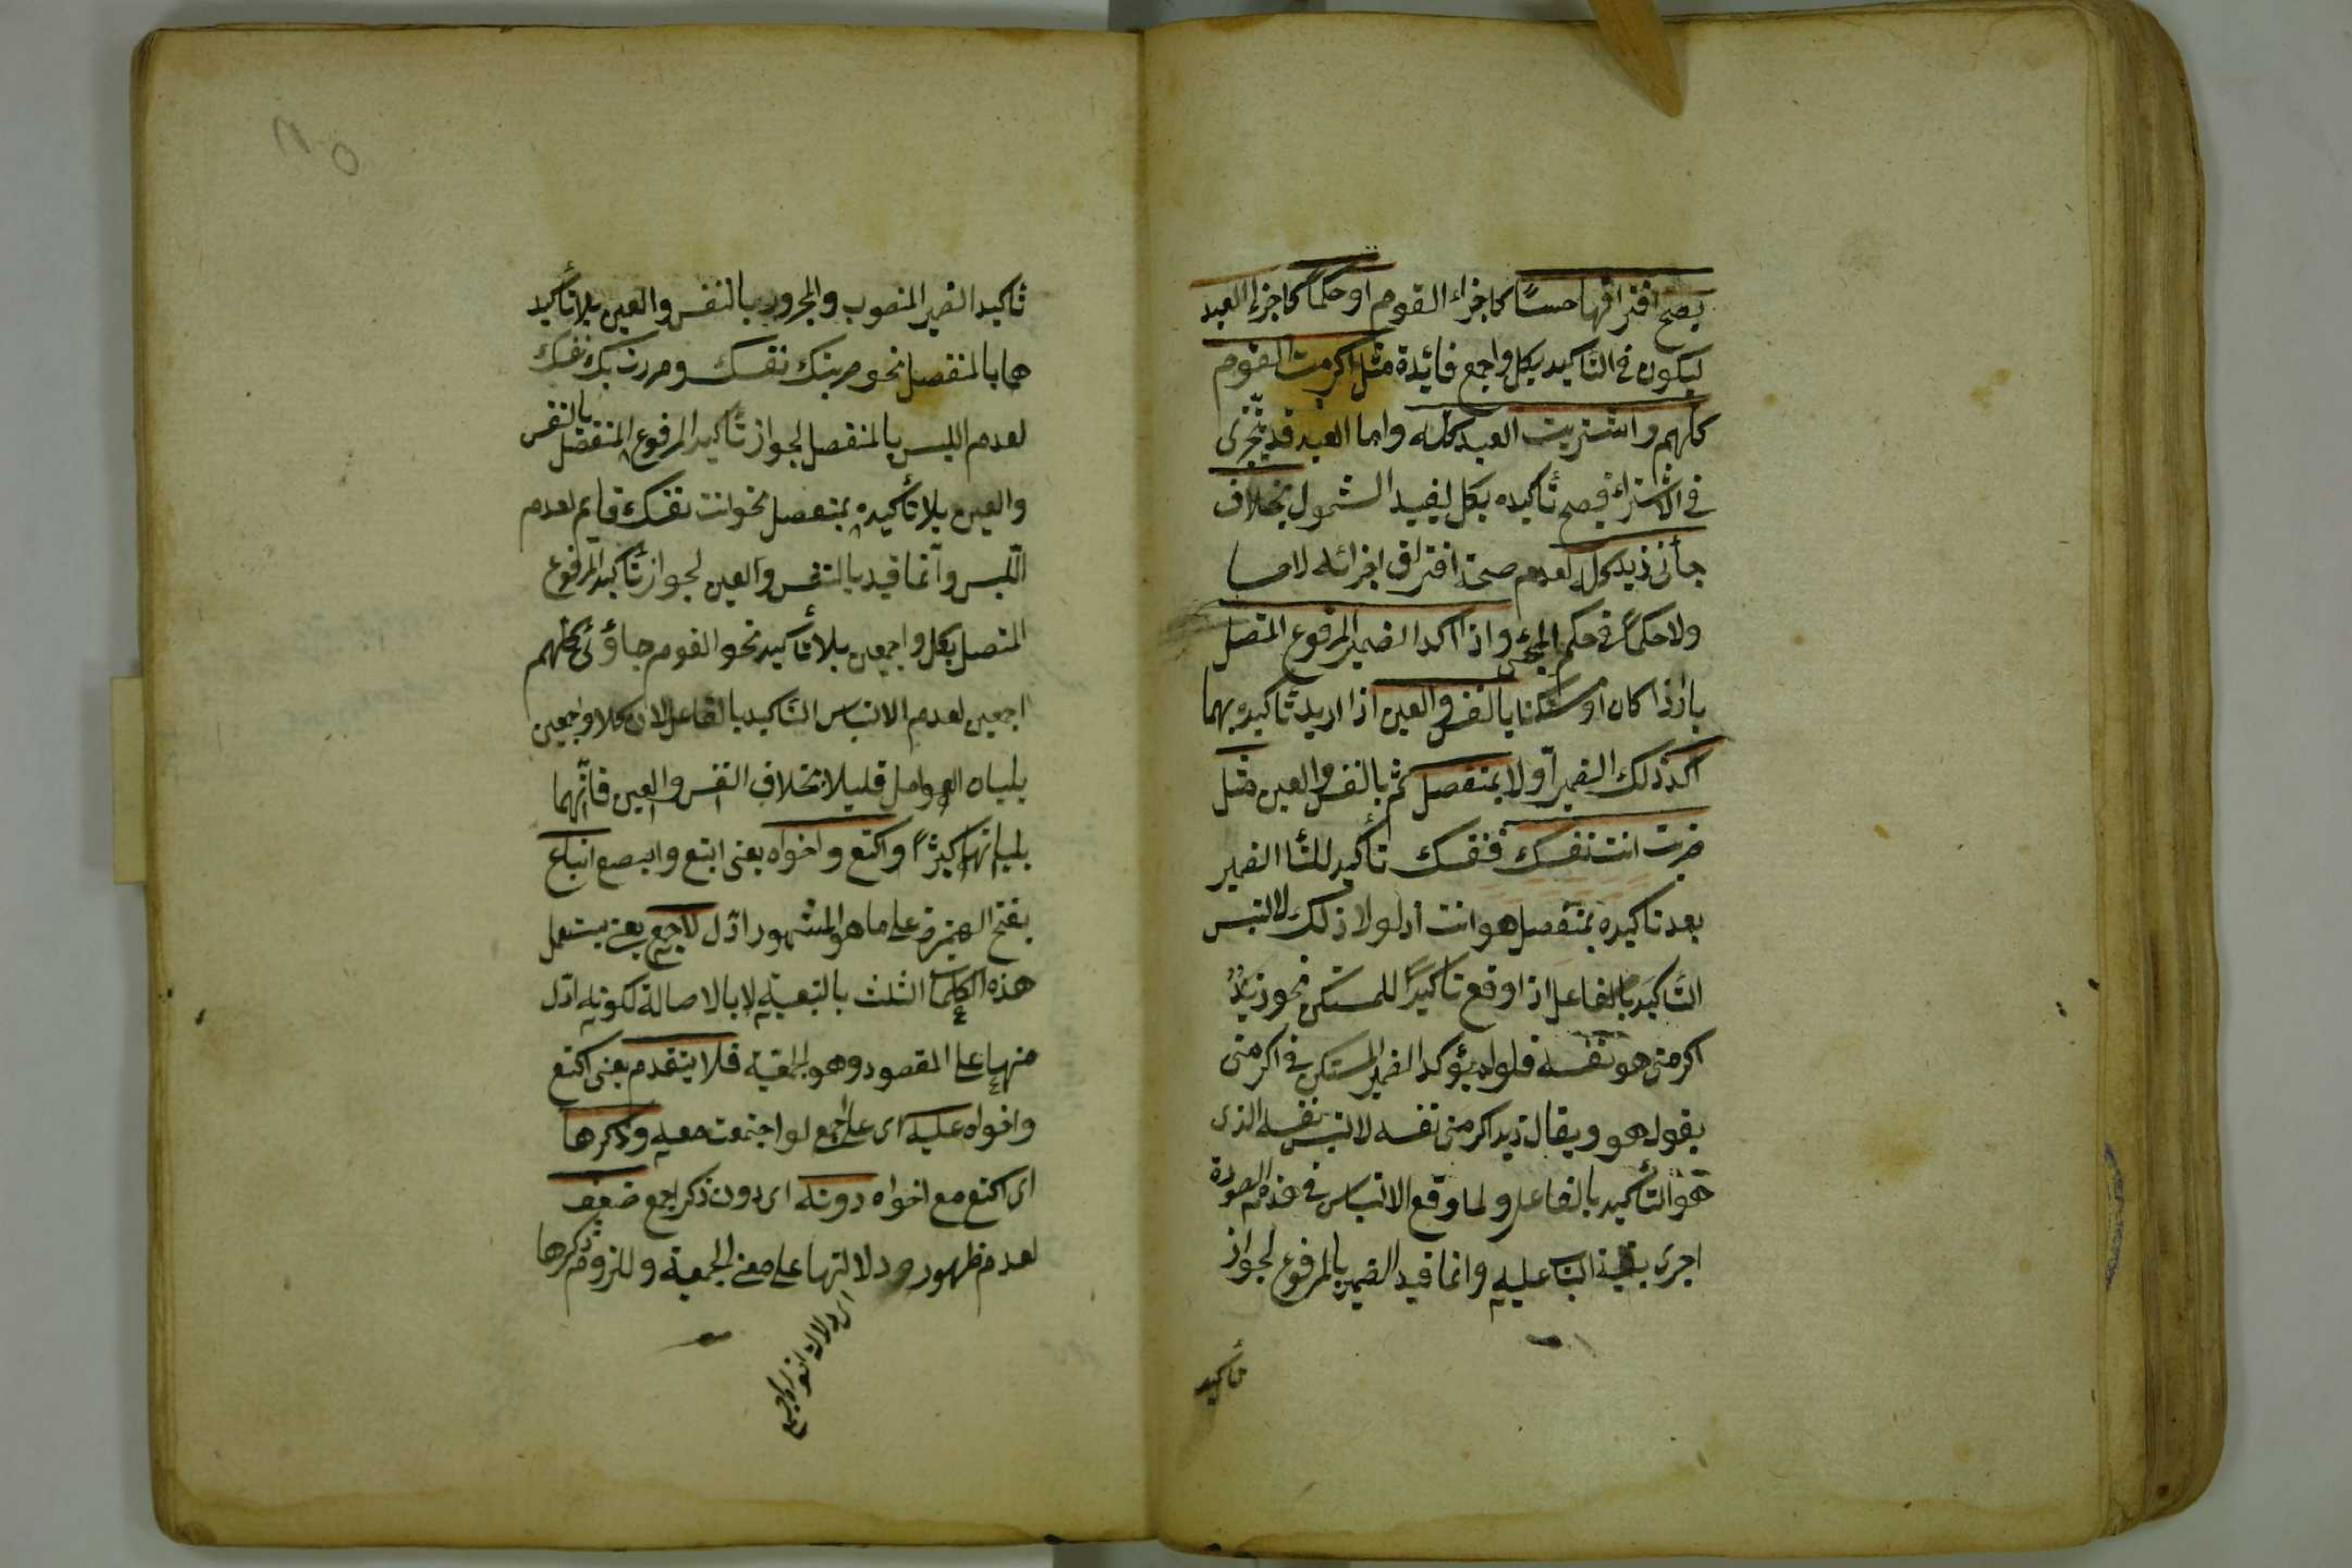 يصح افتراقها حسًا كاجزاء القوم او حكمًا كاجزاء العبد
ليكون فى التاكيد بكل واجمع فائدة مثل اكرمت القوم
كلهم واشتريت العبد كله واما العبد قد يتجزى
فى الاشتراء فيصح تأكيده بكل ليفيد الشمول بخلاف
جأنى زيد كله لعدم صحة افتراق اجزائه لا حسا
ولا حكمًا فى حكم المجئ واذا اكد الضمير المرفوع المتصل
بارزا كان او مستكنا بالنفس والعين اذا اريد تاكيده بهما
اكد ذلك الضمير اولا بمنفصل ثم بالنفس والعين مثل
ضربت انت نفسك فنفسك تأكيد للتا الضمير
بعد تاكيده بمنفصل هو انت اذ لولا ذلك لالتبس
التأكيد بالفاعل اذا وقع تاكيدًا للمستكن نحو زيدٌ
اكرمنى هو نفسه فلو لم يؤكد الضمير المستكن فى اكرمنى
بقوله هو ويقال زيد اكرمنى نفسه لالتبس نفسه الذى
هو التأكيد بالفاعل ولما وقع الالتباس فى هذه الصورة
اجرى بقية الباب عليه وانما قيد الضمير بالمرفوع لجواز
تاكيد
تاكيد الضمير المنصوب والمجرور بالنفس والعين بلا تأكيد
هما بالمنفصل نحو ضربتك نفسك ومررت بك نفسك
لعدم اللبس بالمنفصل لجواز تأكيد المرفوع المنفصل بالنفس
والعين بلا تأكيده بمنفصل نحو انت نفسك قايم لعدم
اللبس وانما قيد بالنفس والعين لجواز تأكيد المرفوع
المتصل بكل واجمعين بلا تأكيد نحو القوم جاؤنى كلهم
اجمعين لعدم الالتباس التاكيد بالفاعل لان كلا واجمعين
يليان العوامل قليلا بخلاف النفس والعين فانهما
يليانها كثيرًا واكتع واخواه يعنى ابتع وابصع اتباع
بفتح الهمزة على ما هو المشهور لاجمع يعنى يستعمل
هذه الكلمات الثلث بالتبعية لا بالاصالة لكونه ادل
منها على المقصود وهو الجمعية فلا يتقدم يعنى اكتع
واخواه عليه اى على اجمع لو اجتمعت معه وذكرها
اى اكتع مع اخواه دونه اى دون ذكر اجمع ضعيف
لعدم ظهور دلالتها على معنى الجمعية وللزوم ذكرها